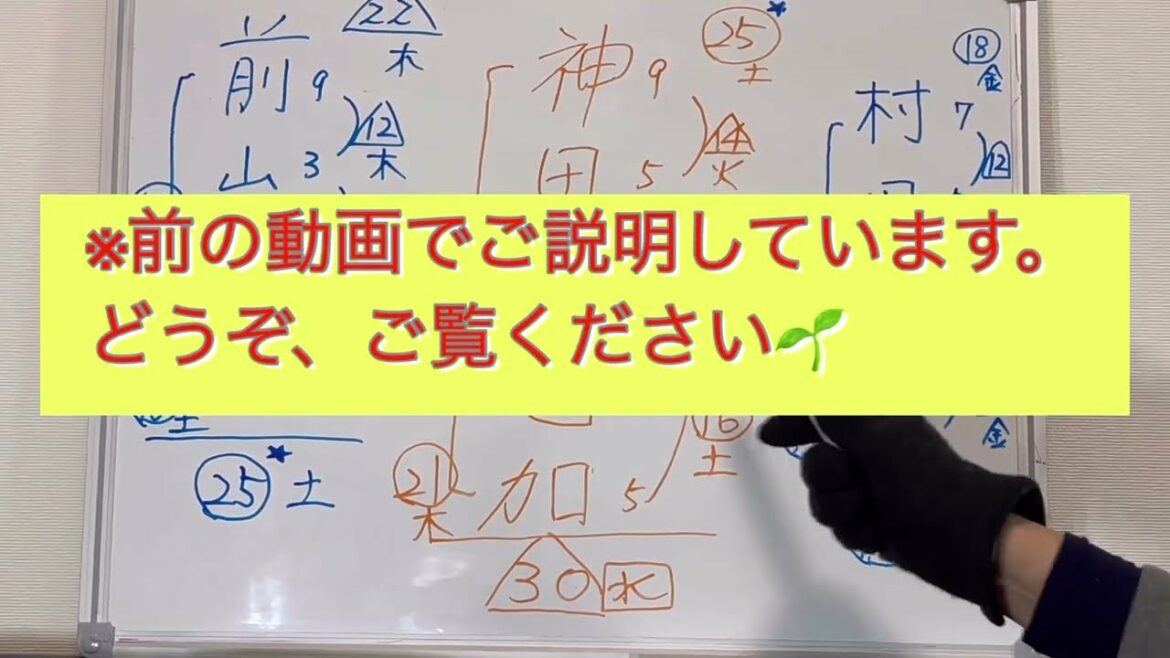 22
木
前 9
12
木
山 3
25 土
神 9
25
土
14
火
田 5
16
土
21
木
加 5
30 水
18
金
村 7
12
金
※前の動画でご説明しています。
どうぞ、ご覧ください🌱